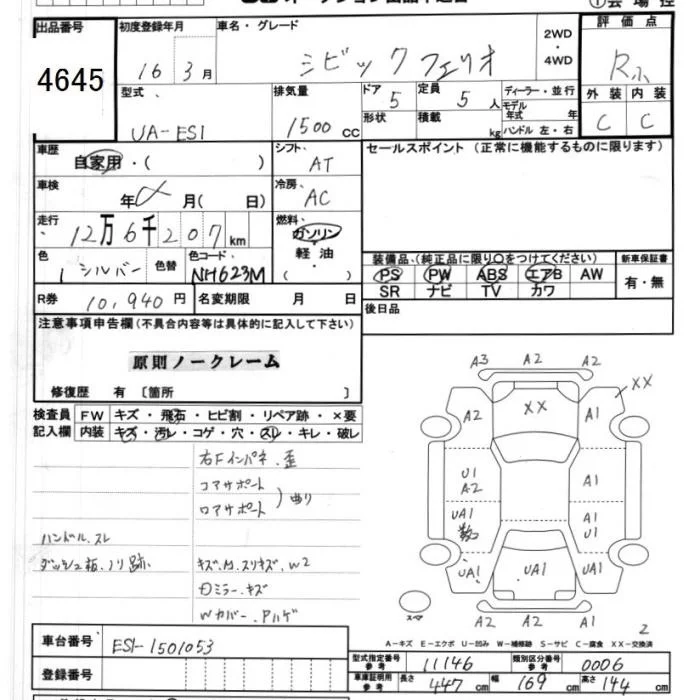 出品番号
4645
初度登録年月
16 3月
車名・グレード
シビックフェリオ
2WD
・
4WD
評価点
R
型式
UA-ES1
排気量
1500 cc
ドア
5
形状
定員
5 人
積載
kg
ディーラー・並行
モデル
年式 年
ハンドル 左・右
外装 内装
C C
車歴
自家用・( )
シフト
AT
セールスポイント (正常に機能するものに限ります)
車検
年 月( 日)
冷房
AC
走行
12万6千207 km
燃料
ガソリン
軽油
( )
色
シルバー
色替
色コード
NH623M
装備品、(純正品に限り○をつけてください)
PS PW ABS エアB AW
SR ナビ TV カワ
新車保証書
有・無
R券
10,940 円
名変期限 月 日
後日品
注意事項申告欄 (不具合内容等は具体的に記入して下さい)
原則ノークレーム
修復歴 有 〔箇所 〕
検査員
記入欄
FW キズ・飛石・ヒビ割・リペア跡・×要
内装 キズ・汚レ・コゲ・穴・スレ・キレ・破レ
右Fインパネ.歪
コアサポート
ロアサポート
曲り
ハンドル.スレ
ダッシュ板.ノリ跡
キズ.凹.スリキズ.W2
ミラー.キズ
Wカバー.Pハゲ
A3 A2 A2
XX
A2 XX A1
U1
A2
A1
UA1
A1
U1
UA1 UA1 UA1
A2 A2 A1
スペア
2
A-キズ E-エクボ U-凹み W-補修跡 S-サビ C-腐食 XX-交換済
車台番号
ES1-1501053
登録番号
型式指定番号
参考
11146
類別区分番号
参考
0006
車庫証明用
参考
長さ 447 cm
幅 169 cm
高さ 144 cm